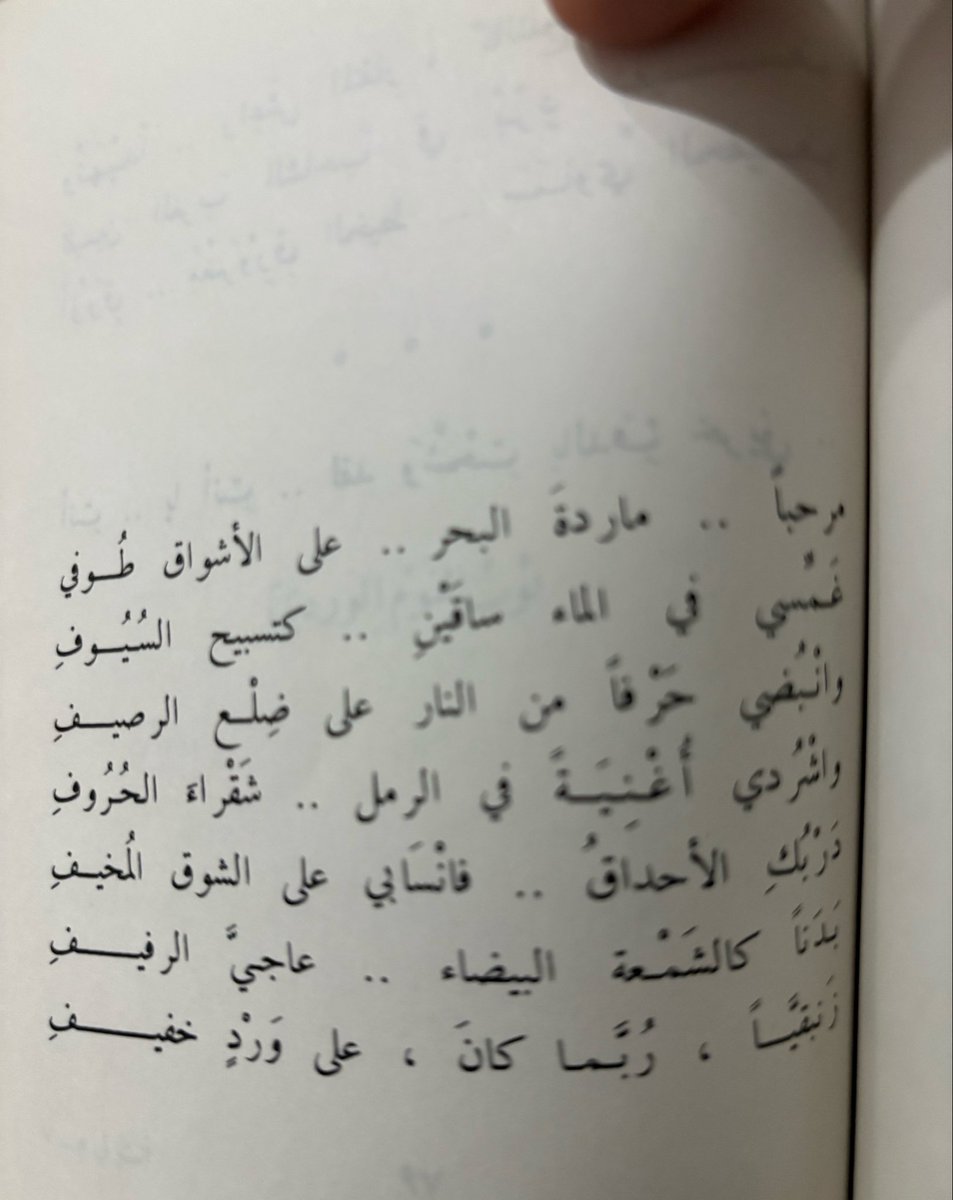 مرحباً .. ماردةَ البحر .. على الأشواق طُوفي
غَمِّسي في الماء ساقَيْنِ .. كتسبيح السُيُوفِ
وانْبُضي حَرْفاً من النار على ضِلْعِ الرصيفِ
واشْرُدي أُغْنِيَةً في الرمل .. شَقْراءَ الحُرُوفِ
دَرْبُكِ الأحداقُ .. فانْسَابي على الشوق المُخيفِ
بَدَناً كالشَمْعة البيضاء .. عاجيَّ الرفيفِ
زَنبقيَّاً ، رُبَّما كانَ ، على وَرْدٍ خفيفِ